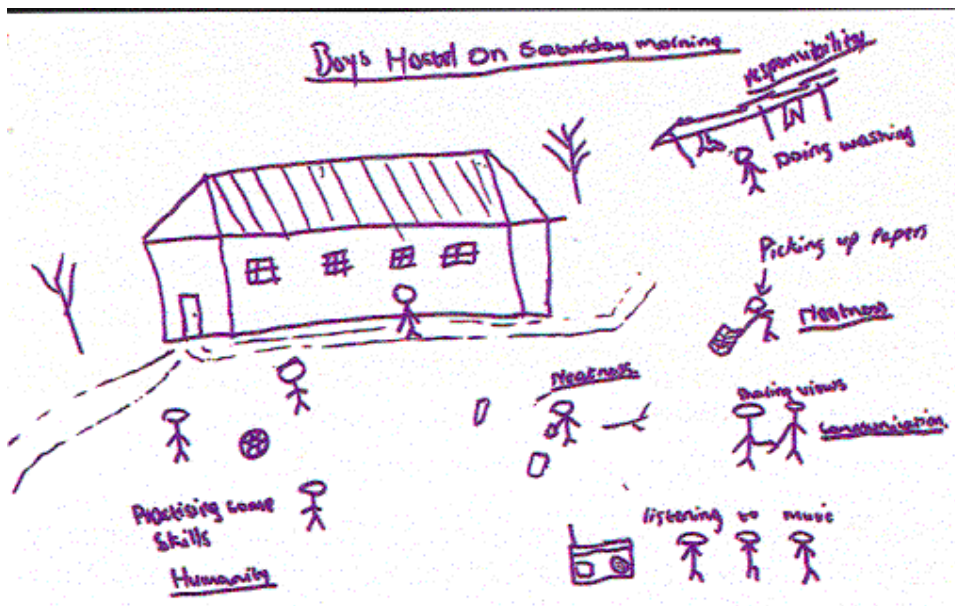 Boys Hostel On Saturday morning
responsibility
Doing washing
Picking up Papers
Neatness
Neatness
Sharing views
Communication
Practising some
Skills
Humanity
listening to music